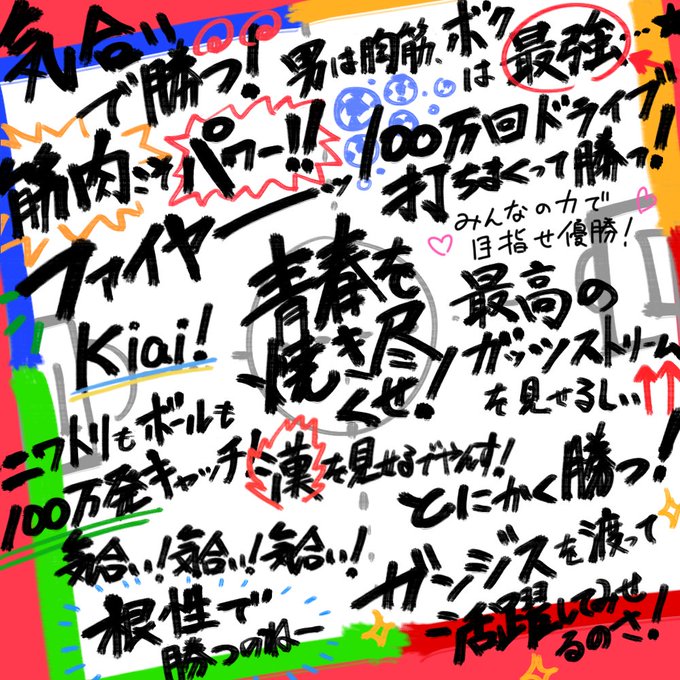 気合い
で勝つ!
男は胸筋、ボク
は最強…★
筋肉こそパワー!!
100万回ドライブ
打ちまくって勝つ!
ファイヤーーッ
みんなの力で
目指せ優勝!
青春を
焼き尽
くせ!
最高の
ガッツストリーム
を見せるしぃ↑↑
Kiai!
ニワトリもボールも
100万発キャッチ!
漢を見せるでやんす!
とにかく勝つ!
気合い!気合い!気合い!
根性で
勝つのねー
ガンジスを渡って
活躍してみせ
るのさ!